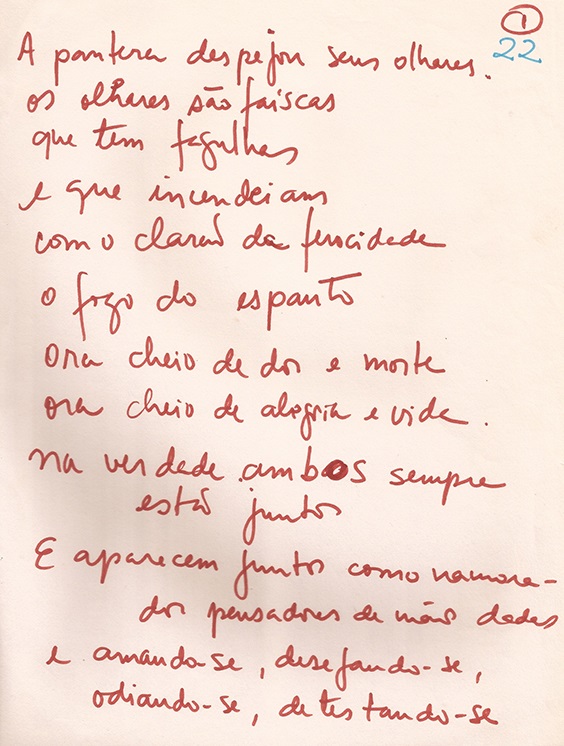 1
22
A pantera despejou seus olhares.
os olhares são faíscas
que tem fagulhas
e que incendeiam
com o clarão da ferocidade
o fogo do espanto
ora cheio de dor e morte
ora cheio de alegria e vida.
na verdade ambos sempre
estão juntos
E aparecem juntos como namora-
dos pensadores de mãos dadas
e amando-se, desejando-se,
odiando-se, detestando-se